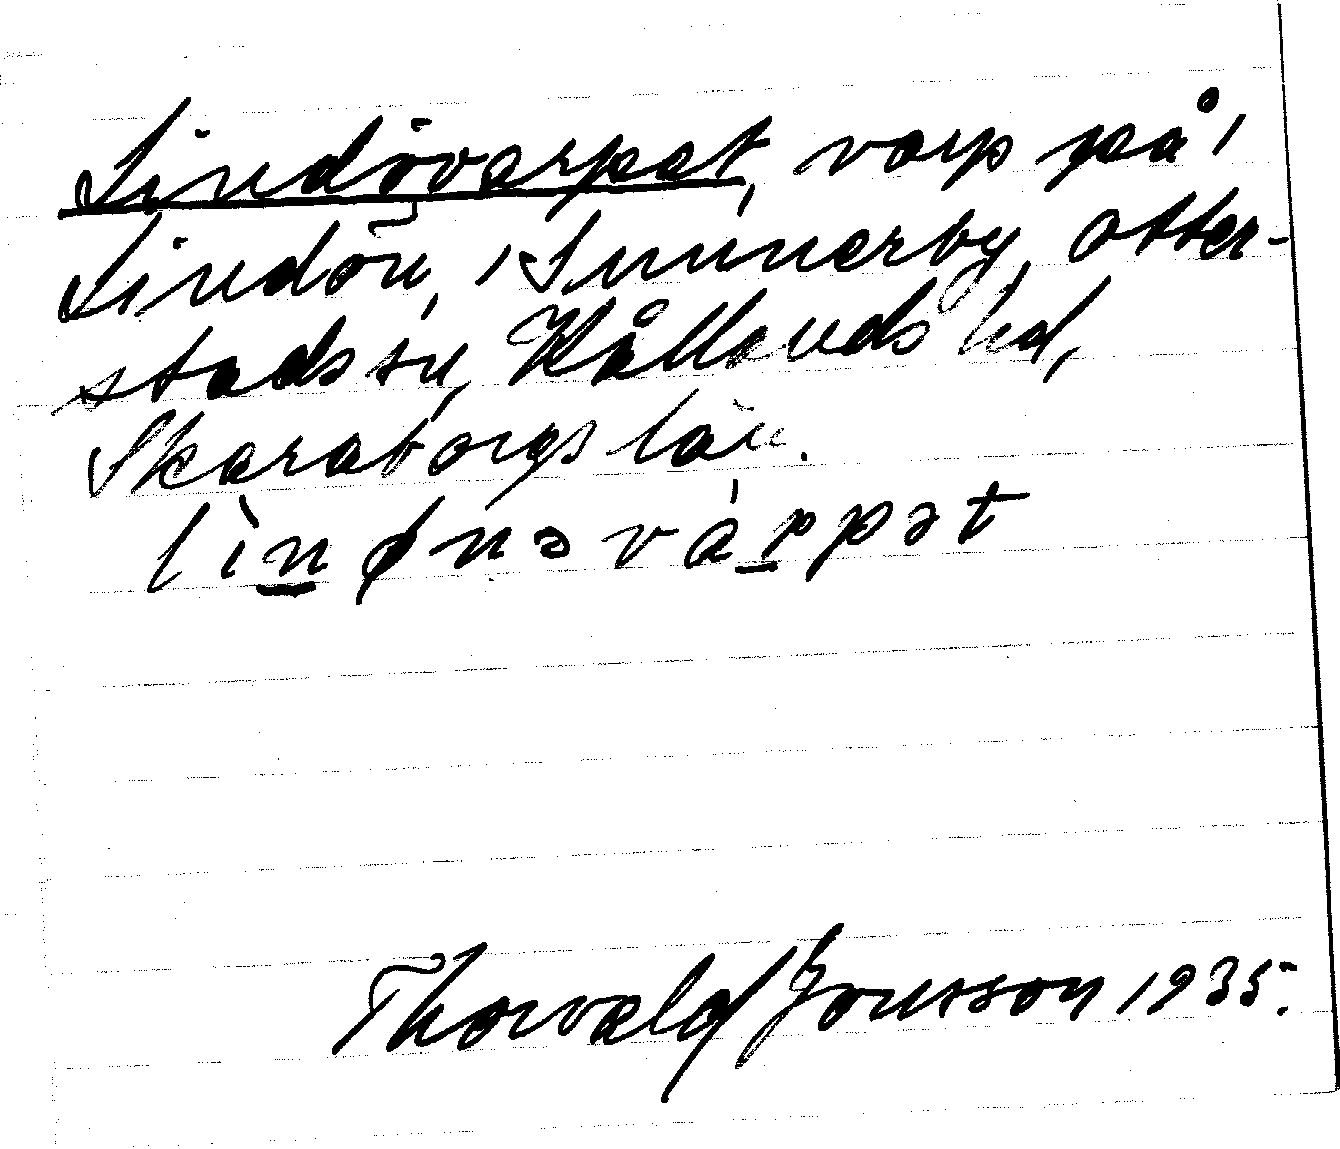 Lindövarpet, varp på
Lindön, Sunnerby, Otter-
stads sn, Kållands hd,
Skaraborgs län.
lìnønəvárpət
Thorvald Jonsson 1935.